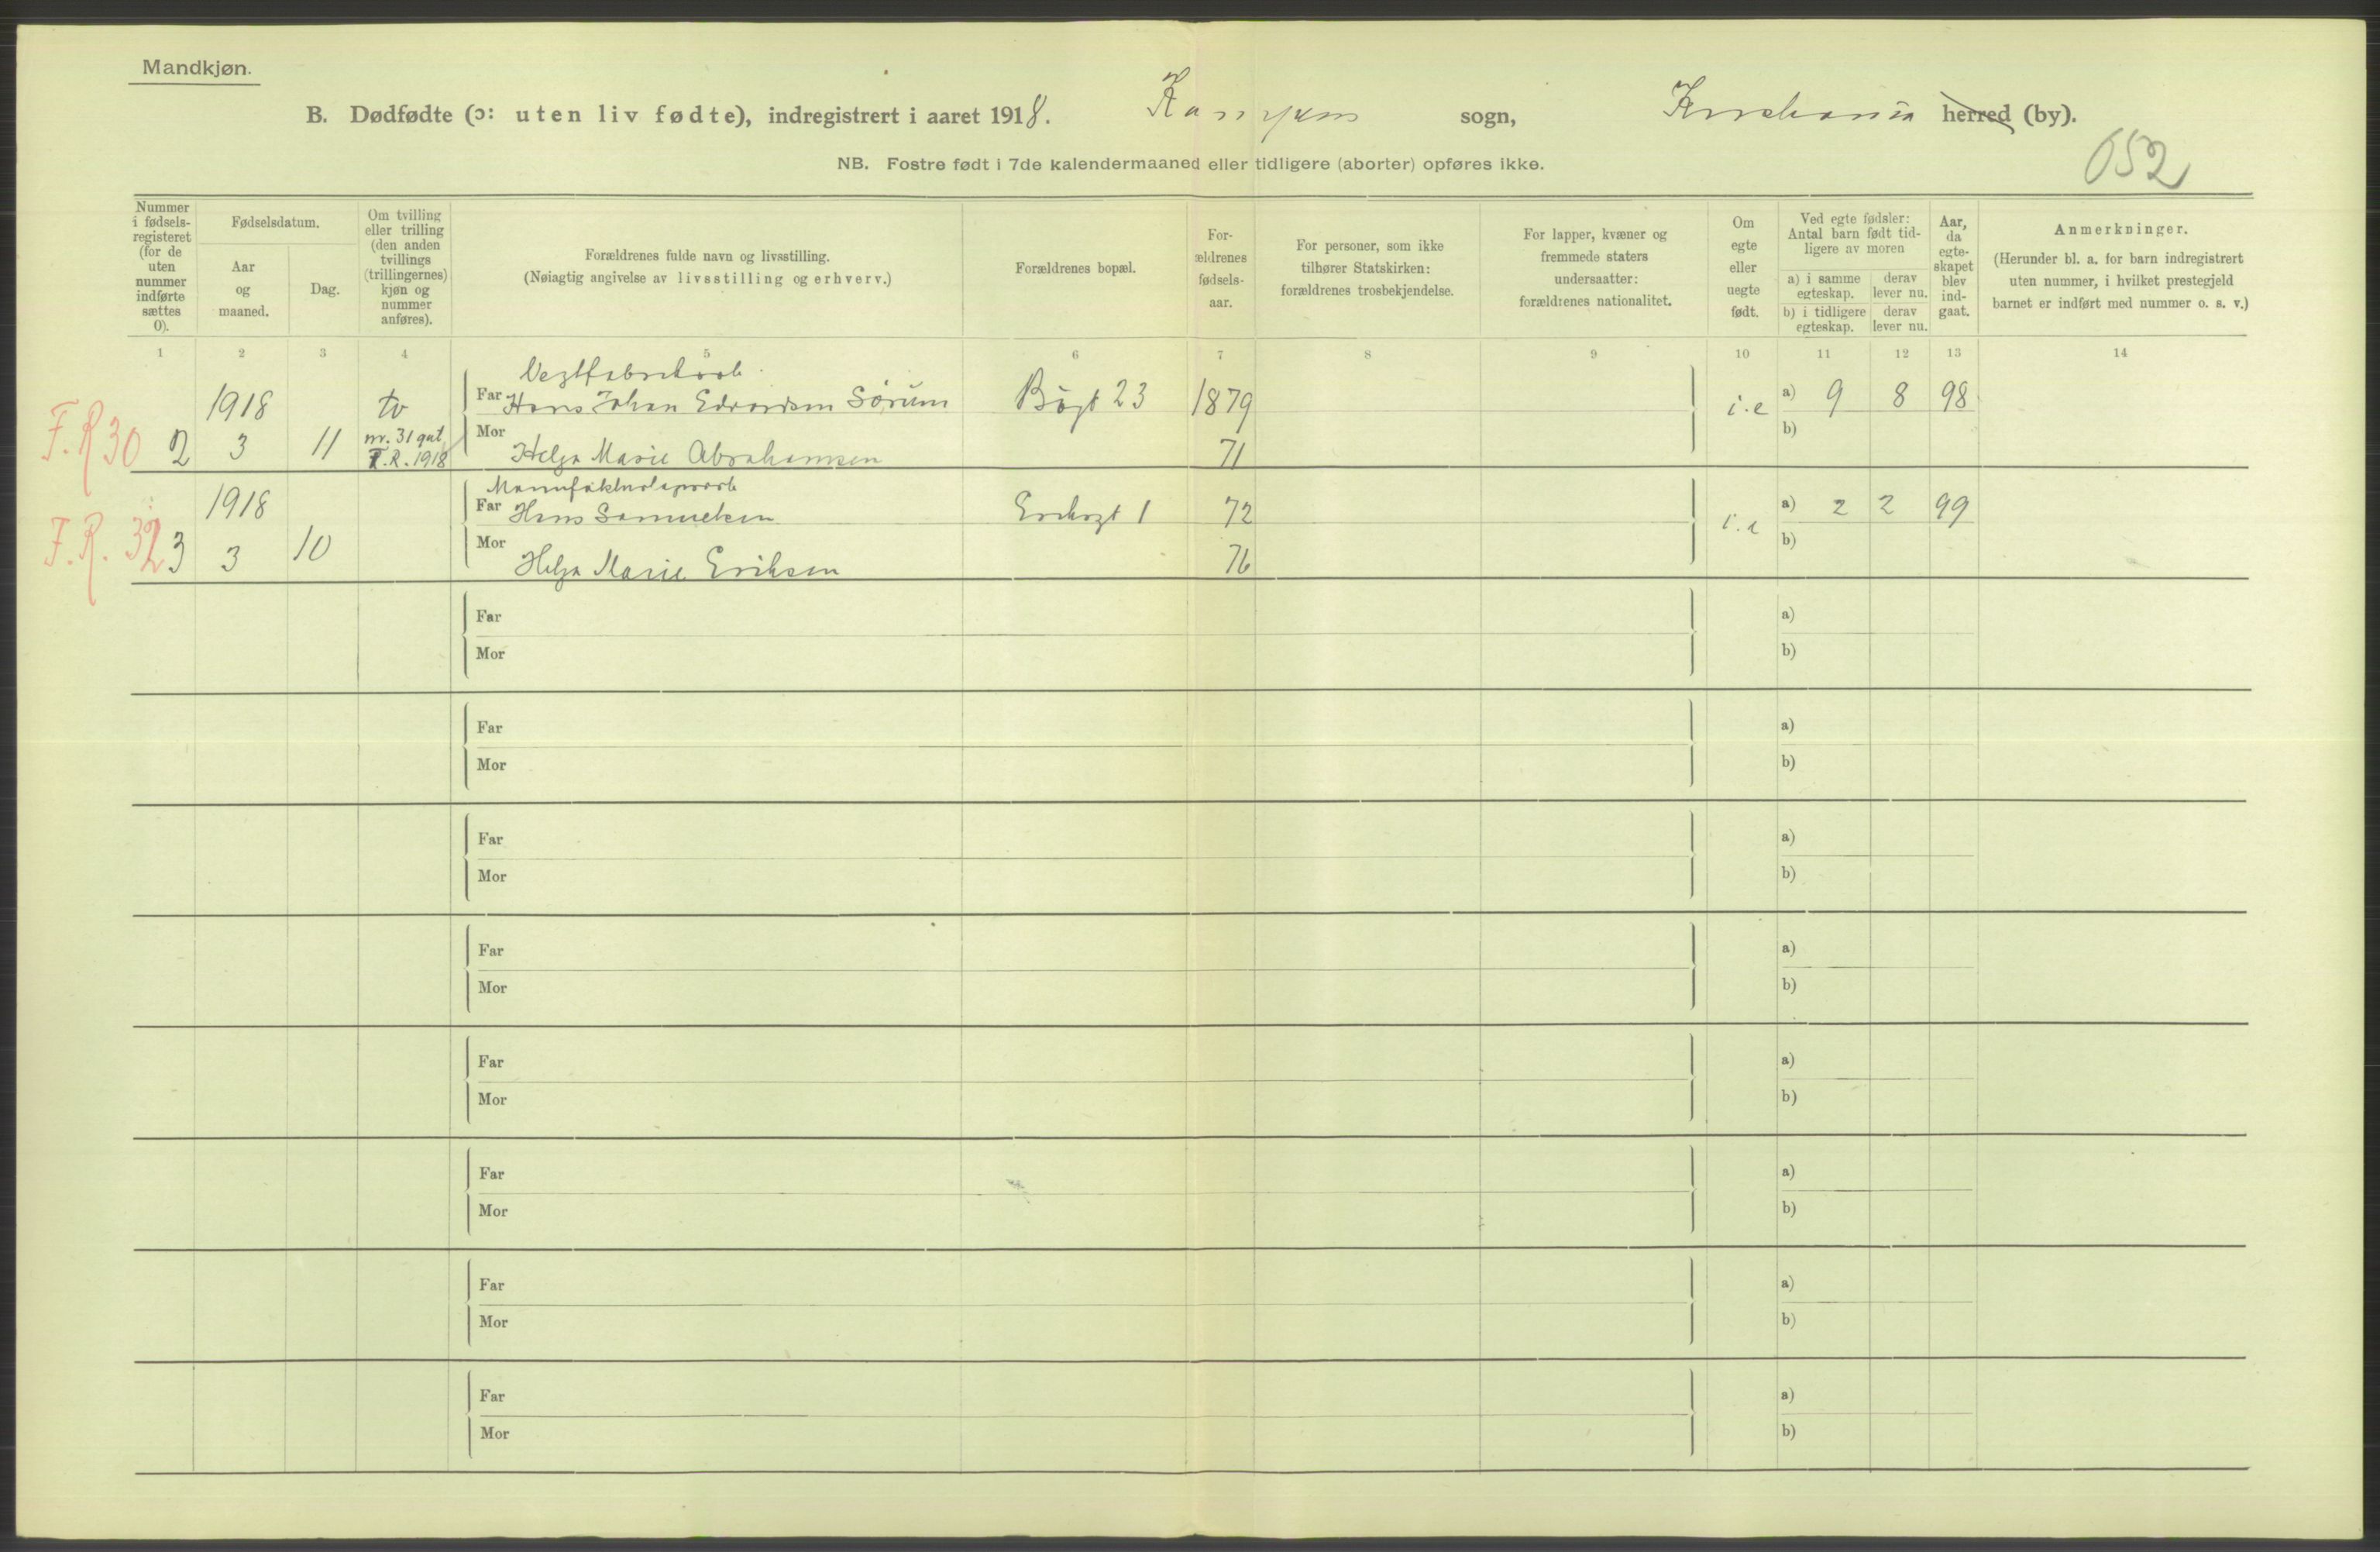 Mandkjøn.
B. Dødfødte (ɔ: uten liv fødte), indregistrert i aaret 1918. Kampen sogn, Kristiania herred (by).
652
NB. Fostre født i 7de kalendermaaned eller tidligere (aborter) opføres ikke.
Nummer i fødsels-registeret (for de uten nummer indførte sættes 0).
Fødselsdatum.
Aar og maaned.
Dag.
Om tvilling eller trilling (den anden tvillings (trillingernes) kjøn og nummer anføres).
Forældrenes fulde navn og livsstilling.
(Nøiagtig angivelse av livsstilling og erhverv.)
Forældrenes bopæl.
For-ældrenes fødsels-aar.
For personer, som ikke tilhører Statskirken: forældrenes trosbekjendelse.
For lapper, kvæner og fremmede staters undersaatter: forældrenes nationalitet.
Om egte eller uegte født.
Ved egte fødsler: Antal barn født tid-ligere av moren
a) i samme egteskap. derav lever nu.
b) i tidligere egteskap. derav lever nu.
Aar, da egte-skapet blev ind-gaat.
Anmerkninger.
(Herunder bl. a. for barn indregistrert uten nummer, i hvilket prestegjeld barnet er indført med nummer o. s. v.)
1 2 3 4 5 6 7 8 9 10 11 12 13 14
1918 tv Far Hans Johan Edvardsen Sørum Bøgt 23 1879 i.e a) 9 8 98
F.R 30 2 3 11 nr. 31 gut Mor b)
F.R. 1918 Helga Marie Abrahamsen 71
1918 Far Hans Samuelsen Eriksgt 1 72 a) 2 2 99
F.R. 32 3 3 10 Mor b)
Helga Marie Eriksen 76
Far a)
Mor b)
Far a)
Mor b)
Far a)
Mor b)
Far a)
Mor b)
Far a)
Mor b)
Far a)
Mor b)
Far a)
Mor b)
Far a)
Mor b)